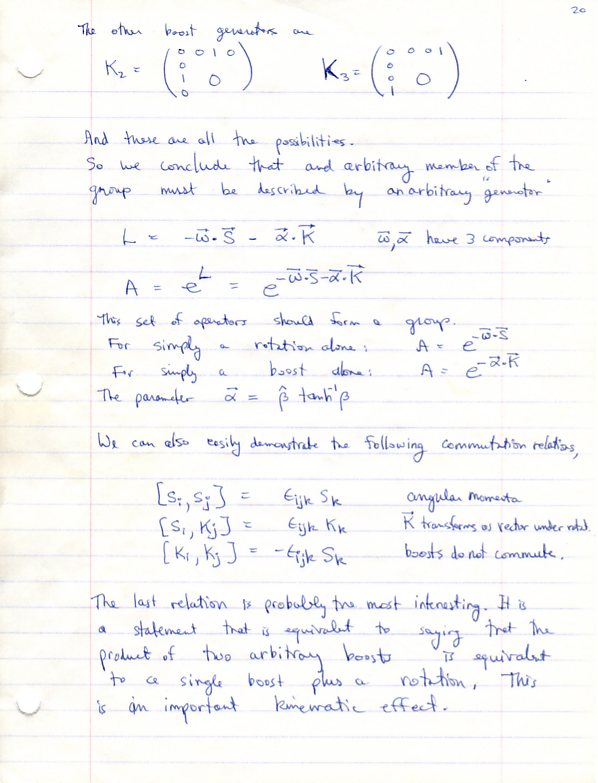 20
The other boost generators are
K₂ = ( 0 0 1 0 / 0 / 1 0 / 0 )    K₃ = ( 0 0 0 1 / 0 / 0 0 / 1 ) .
And these are all the possibilities.
So we conclude that and arbitrary member of the
group must be described by an arbitrary "generator"
L = -ω⃗·S⃗ - α⃗·K⃗    ω⃗, α⃗ have 3 components
A = e^L = e^{-ω⃗·S⃗-α⃗·K⃗}
This set of operators should form a group.
For simply a rotation alone: A = e^{-ω⃗·S⃗}
For simply a boost alone: A = e^{-α⃗·K⃗}
The parameter α⃗ = β̂ tanh⁻¹β
We can also easily demonstrate the following commutation relations,
[Si, Sj] = ϵijk Sk    angular momenta
[Si, Kj] = ϵijk Kk    K⃗ transforms as vector under rotat.
[Ki, Kj] = -ϵijk Sk    boosts do not commute.
The last relation is probably the most interesting. It is
a statement that is equivalent to saying that the
product of two arbitrary boosts is equivalent
to a single boost plus a rotation, This
is an important kinematic effect.